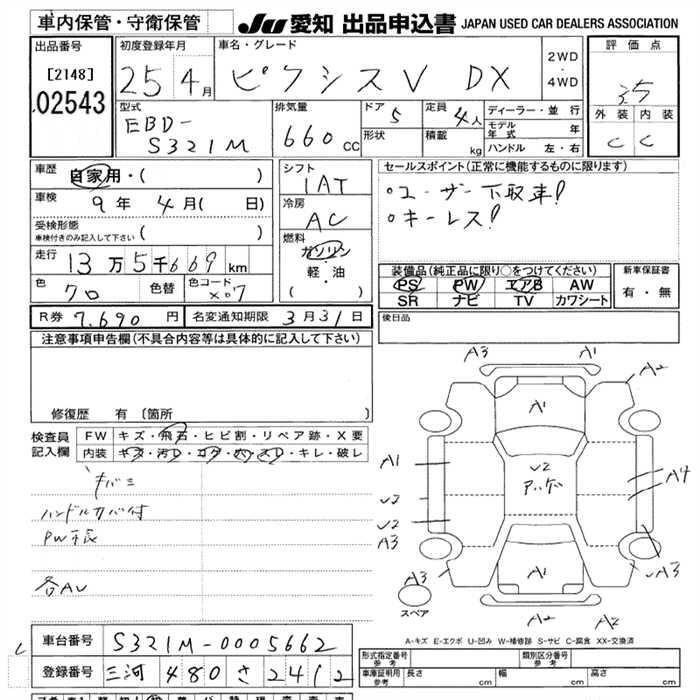 車内保管・守衛保管
JU 愛知 出品申込書 JAPAN USED CAR DEALERS ASSOCIATION
出品番号
[2148]
02543
初度登録年月
25 4月
車名・グレード
ピクシスV DX
2WD
・
4WD
評価点
3.5
外装 内装
C C
型式
EBD-
S321M
排気量
660cc
ドア 5
形状
定員 4人
積載 kg
ディーラー・並行
モデル年式 年
ハンドル 左・右
車歴 自家用・( )
車検 9年 4月( 日)
受検形態
車検付きのみ記入して下さい ( )
走行 13万5千669km
色 クロ 色替 色コード X07
シフト
1AT
冷房
AC
燃料
ガソリン
・
軽・油
( )
セールスポイント(正常に機能するものに限ります)
○ユーザー下取車!
○キーレス!
装備品(純正品に限り○をつけてください)
PS PW エアB AW
SR ナビ TV カワシート
新車保証書
有・無
R券 7,690円 名変通知期限 3月31日
後日品
注意事項申告欄(不具合内容等は具体的に記入して下さい)
修復歴 有 〔箇所
検査員
記入欄
FW キズ・飛石・ヒビ割・リペア跡・X要
内装 キズ・汚レ・コゲ・穴・スレ・キレ・破レ
キバミ
ハンドルカバー付
各AU
A3 A1
A2
A1
A1
U2
アンダー
A4
U2
U2
A3
A3
A1
A3
スペア
A2 A2
A-キズ E-エクボ U-凹み W-補修跡 S-サビ C-腐食 XX-交換済
車台番号 S321M-0005662
登録番号 三河 480 さ 2412
形式指定番号
参考
類別区分番号
参考
車庫証明用
参考
長さ cm 幅 cm 高さ cm